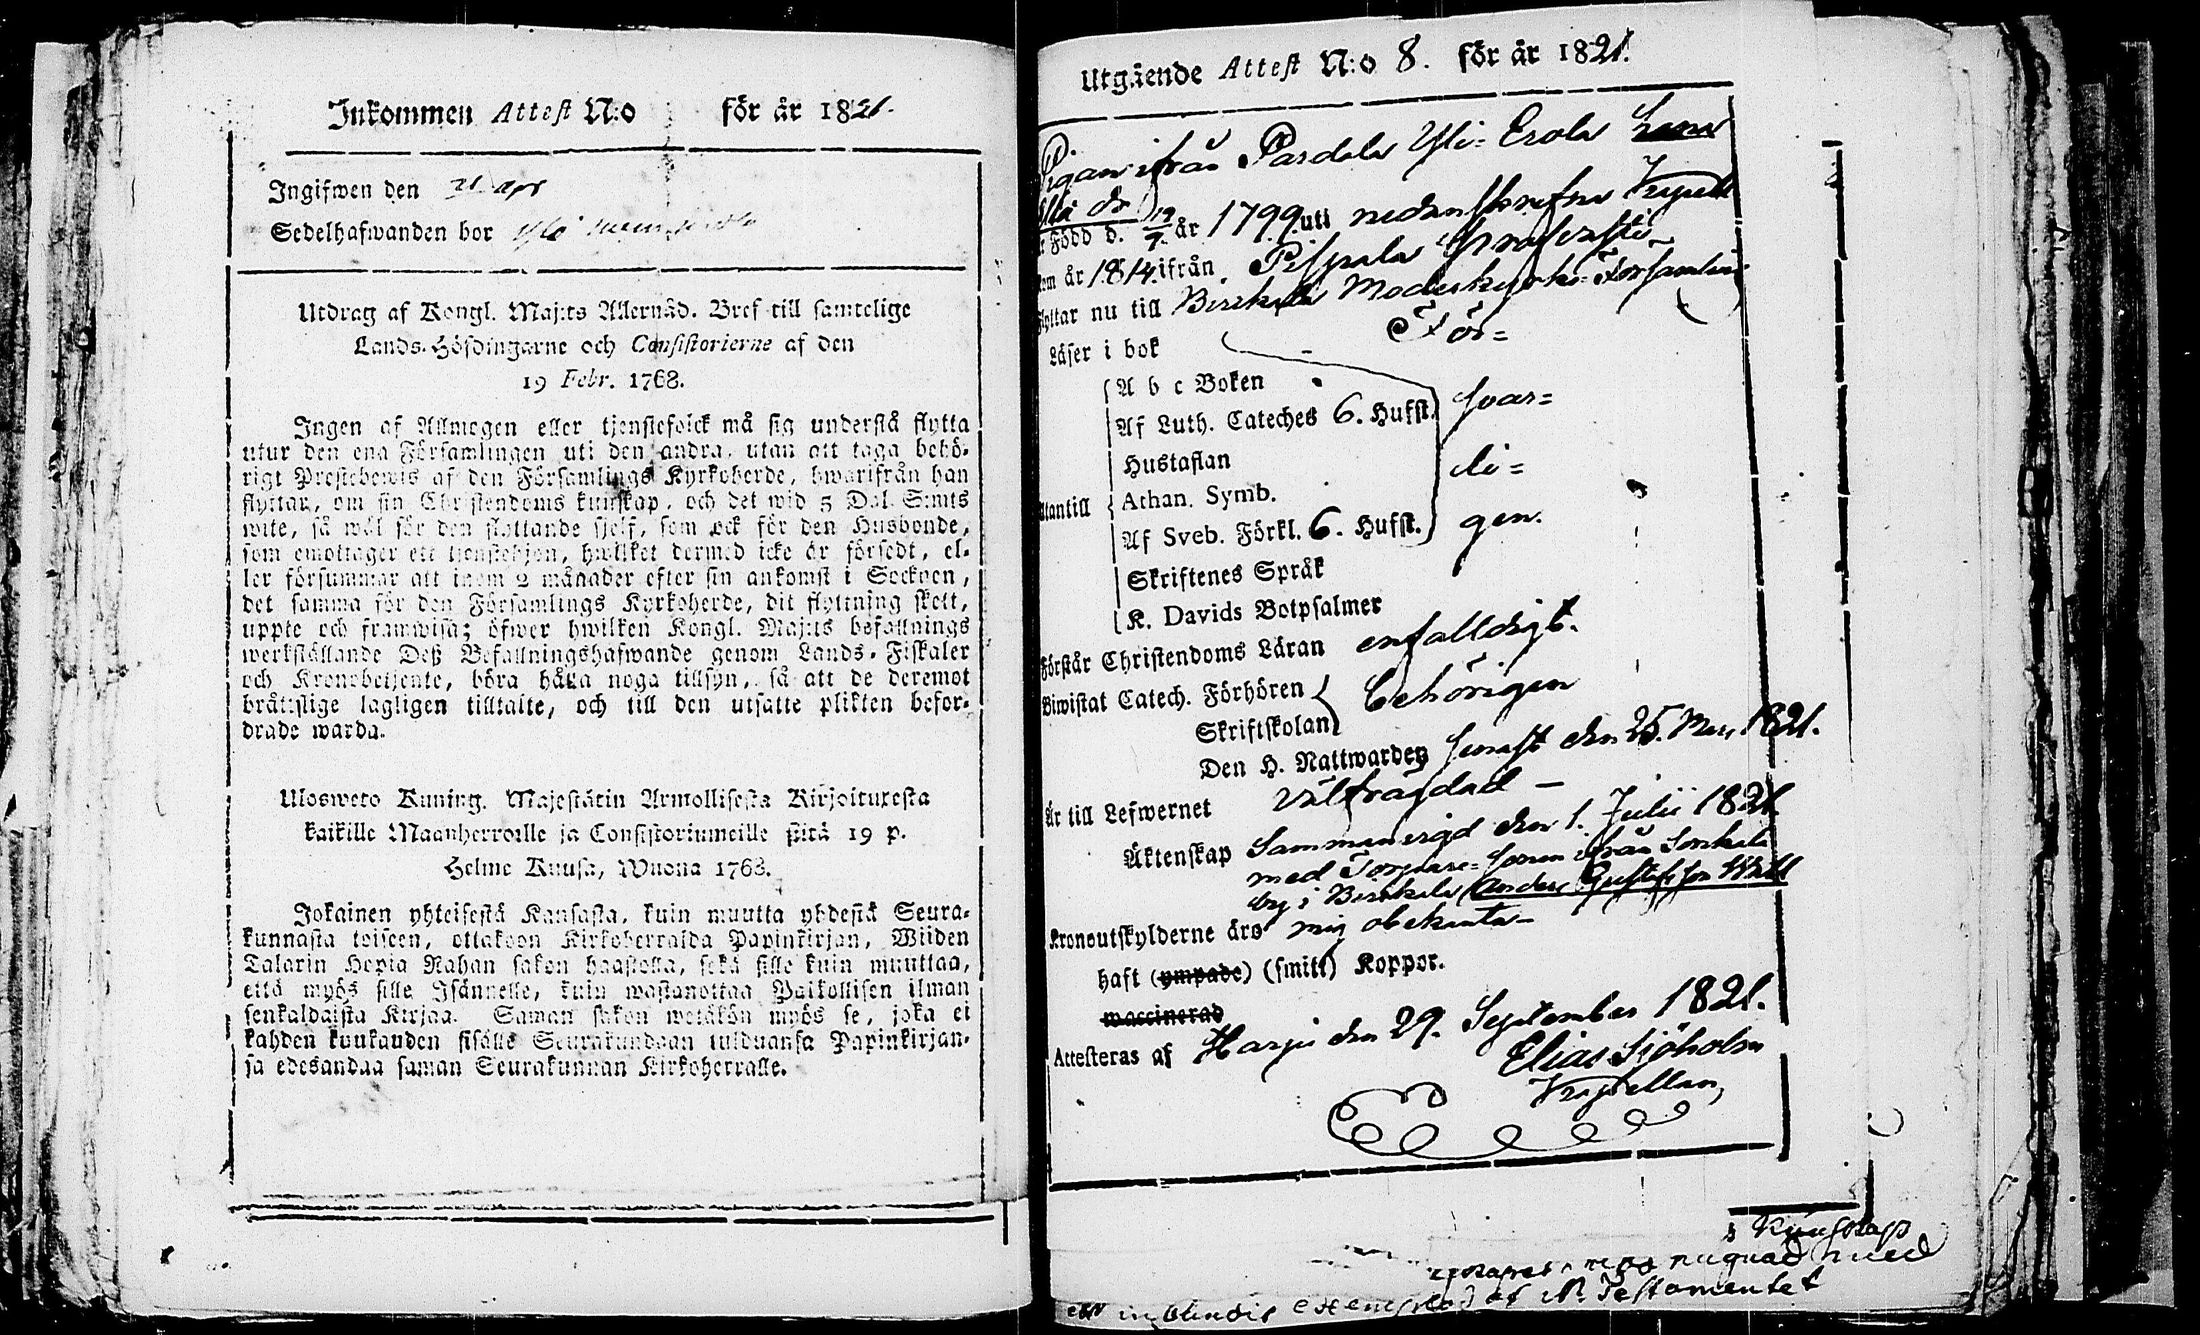 Inkommen Attest N:o för år 1821.
Ingifwen den 21 Apr
Sedelhafwanden bor
Utdrag af Kongl. Maj:ts Allernåd. Bref till samtelige
Lands-Höfdingarne och Consistorierne af den
19 Febr. 1768.
Ingen af Allmogen eller tjenstefolck må sig understå flytta
utur den ena Församlingen uti den andra, utan att taga behö-
rigt Prestebewis af den Församlings Kyrkoherde, hwarifrån han
flyttar, om sin Christendoms kunskap, och det wid 5 Dal. S:mts
wite, så wäl för den flyttande sjelf, som ock för den Husbonde,
som emottager ett tjenstehjon, hwilket dermed icke är försedt, el-
ler försummar att inom 2 månader efter sin ankomst i Socknen,
det samma för den Församlings Kyrkoherde, dit flyttning skett,
uppte och framwisa; öfwer hwilken Kongl. Maj:ts befallnings
werkställande Deß Befallningshafwande genom Lands-Fiskaler
och Kronobetjente, böra hålla noga tillsyn, så att de deremot
bråttslige lagligen tilltalte, och till den utsatte plikten befor-
drade warda.
Ulosweto Kuning. Majestätin Armollisesta Kirjoituxesta
kaikille Maanherroille ja Consistoriumeille siitä 19 p.
Helme Kuusa, Wuona 1768.
Jokainen yhteisestä Kansasta, kuin muutta yhdestä Seura-
kunnasta toiseen, ottakoon Kirkoherralda Papinkirjan, Wiiden
Talarin Hopia Rahan sakon haastolla, sekä sille kuin muuttaa,
että myös sille Isännelle, kuin wastanottaa Paikollisen ilman
senkaldaista Kirjaa. Saman sakon wetäkön myös se, joka ei
kahden kuukauden sisälle Seurakundaan tulduansa Papinkirjan-
sa edesandaa saman Seurakunnan Kirkoherralle.
Utgående Attest N:o 8. för år 1821.
Pigan ifrån Pardala Yli-Erola
Född d. 19/7. år 1799 uti nedanskrefne Capell
år 1814 ifrån Pispala
flyttar nu till Birckala Moderkyrko-Församling
Läser i bok För-
A b c Boken
Af Luth. Cateches 6. Hufst. svar-
Hustaflan li-
Athan. Symb.
Utantill
Af Sveb. Förkl. 6. Hufst. gen.
Skriftenes Språk
K. Davids Botpsalmer
Förstår Christendoms Läran enfalldigt.
Biwistat Catech. Förhören behörigen
Skriftskolan
Den H. Nattwarden senast den 25. Mars 1821.
Är till Lefwernet välfrägdad —
Äktenskap Sammanvigd den 1. Julii 1821.
med Torpare-sonen ifrån
by i Birckala Anders Gustafsson
Kronoutskylderne äro mig obekanta —
haft (ympade) (smitt) Koppor.
waccinerad
Attesteras af Harju den 29. September 1821.
Elias Sjöholm
Kapellan
Kunskap
med
af N. Testamentet